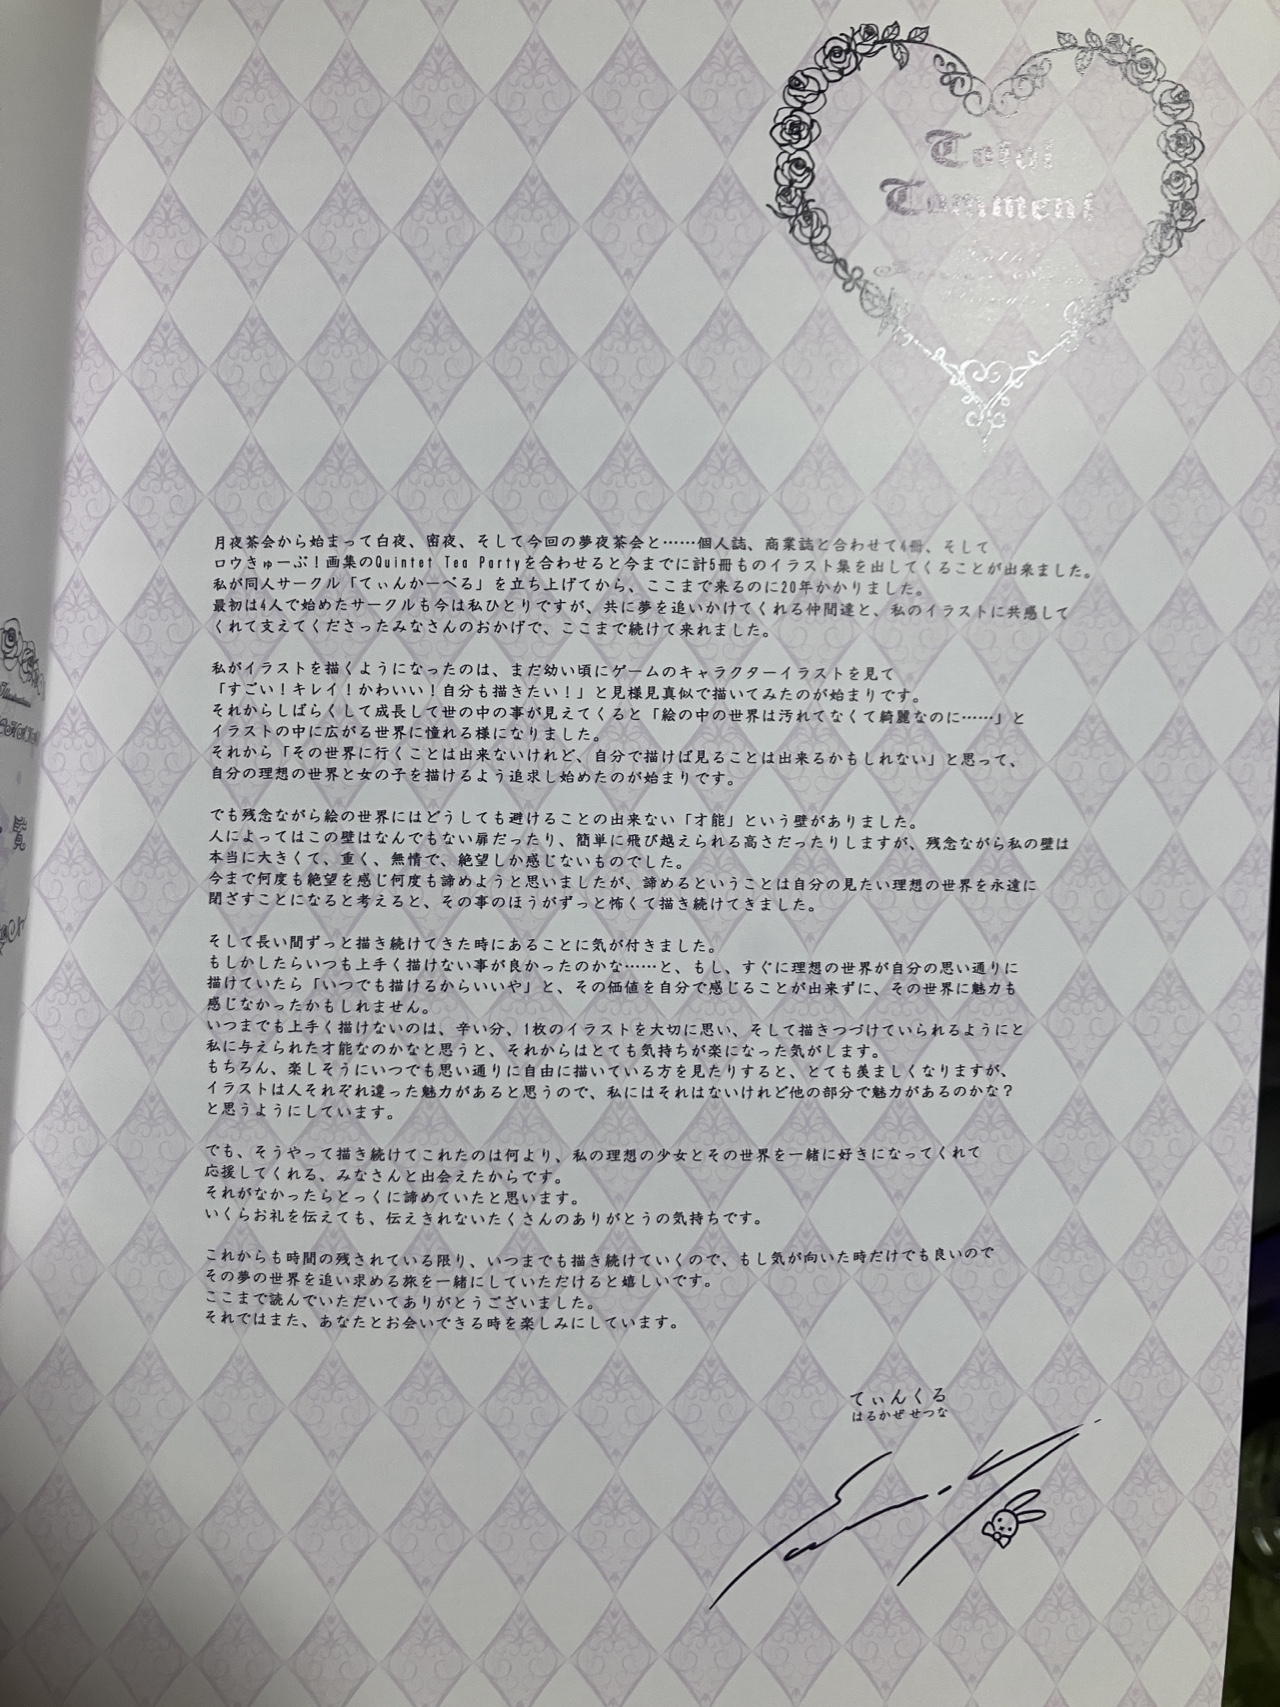 Total
Comment
月夜茶会から始まって白夜、密夜、そして今回の夢夜茶会と……個人誌、商業誌と合わせて4冊、そして
ロウきゅーぶ！画集のQuintet Tea Partyを合わせると今までに計5冊ものイラスト集を出してくることが出来ました。
私が同人サークル「てぃんかーべる」を立ち上げてから、ここまで来るのに20年かかりました。
最初は4人で始めたサークルも今は私ひとりですが、共に夢を追いかけてくれる仲間達と、私のイラストに共感して
くれて支えてくださったみなさんのおかげで、ここまで続けて来れました。
私がイラストを描くようになったのは、まだ幼い頃にゲームのキャラクターイラストを見て
「すごい！キレイ！かわいい！自分も描きたい！」と見様見真似で描いてみたのが始まりです。
それからしばらくして成長して世の中の事が見えてくると「絵の中の世界は汚れてなくて綺麗なのに……」と
イラストの中に広がる世界に憧れる様になりました。
それから「その世界に行くことは出来ないけれど、自分で描けば見ることは出来るかもしれない」と思って、
自分の理想の世界と女の子を描けるよう追求し始めたのが始まりです。
でも残念ながら絵の世界にはどうしても避けることの出来ない「才能」という壁がありました。
人によってはこの壁はなんでもない扉だったり、簡単に飛び越えられる高さだったりしますが、残念ながら私の壁は
本当に大きくて、重く、無情で、絶望しか感じないものでした。
今まで何度も絶望を感じ何度も諦めようと思いましたが、諦めるということは自分の見たい理想の世界を永遠に
閉ざすことになると考えると、その事のほうがずっと怖くて描き続けてきました。
そして長い間ずっと描き続けてきた時にあることに気が付きました。
もしかしたらいつも上手く描けない事が良かったのかな……と、もし、すぐに理想の世界が自分の思い通りに
描けていたら「いつでも描けるからいいや」と、その価値を自分で感じることが出来ずに、その世界に魅力も
感じなかったかもしれません。
いつまでも上手く描けないのは、辛い分、1枚のイラストを大切に思い、そして描きつづけていられるようにと
私に与えられた才能なのかなと思うと、それからはとても気持ちが楽になった気がします。
もちろん、楽しそうにいつでも思い通りに自由に描いている方を見たりすると、とても羨ましくなりますが、
イラストは人それぞれ違った魅力があると思うので、私にはそれはないけれど他の部分で魅力があるのかな？
と思うようにしています。
でも、そうやって描き続けてこれたのは何より、私の理想の少女とその世界を一緒に好きになってくれて
応援してくれる、みなさんと出会えたからです。
それがなかったらとっくに諦めていたと思います。
いくらお礼を伝えても、伝えきれないたくさんのありがとうの気持ちです。
これからも時間の残されている限り、いつまでも描き続けていくので、もし気が向いた時だけでも良いので
その夢の世界を追い求める旅を一緒にしていただけると嬉しいです。
ここまで読んでいただいてありがとうございました。
それではまた、あなたとお会いできる時を楽しみにしています。
てぃんくる
はるかぜせつな
覧